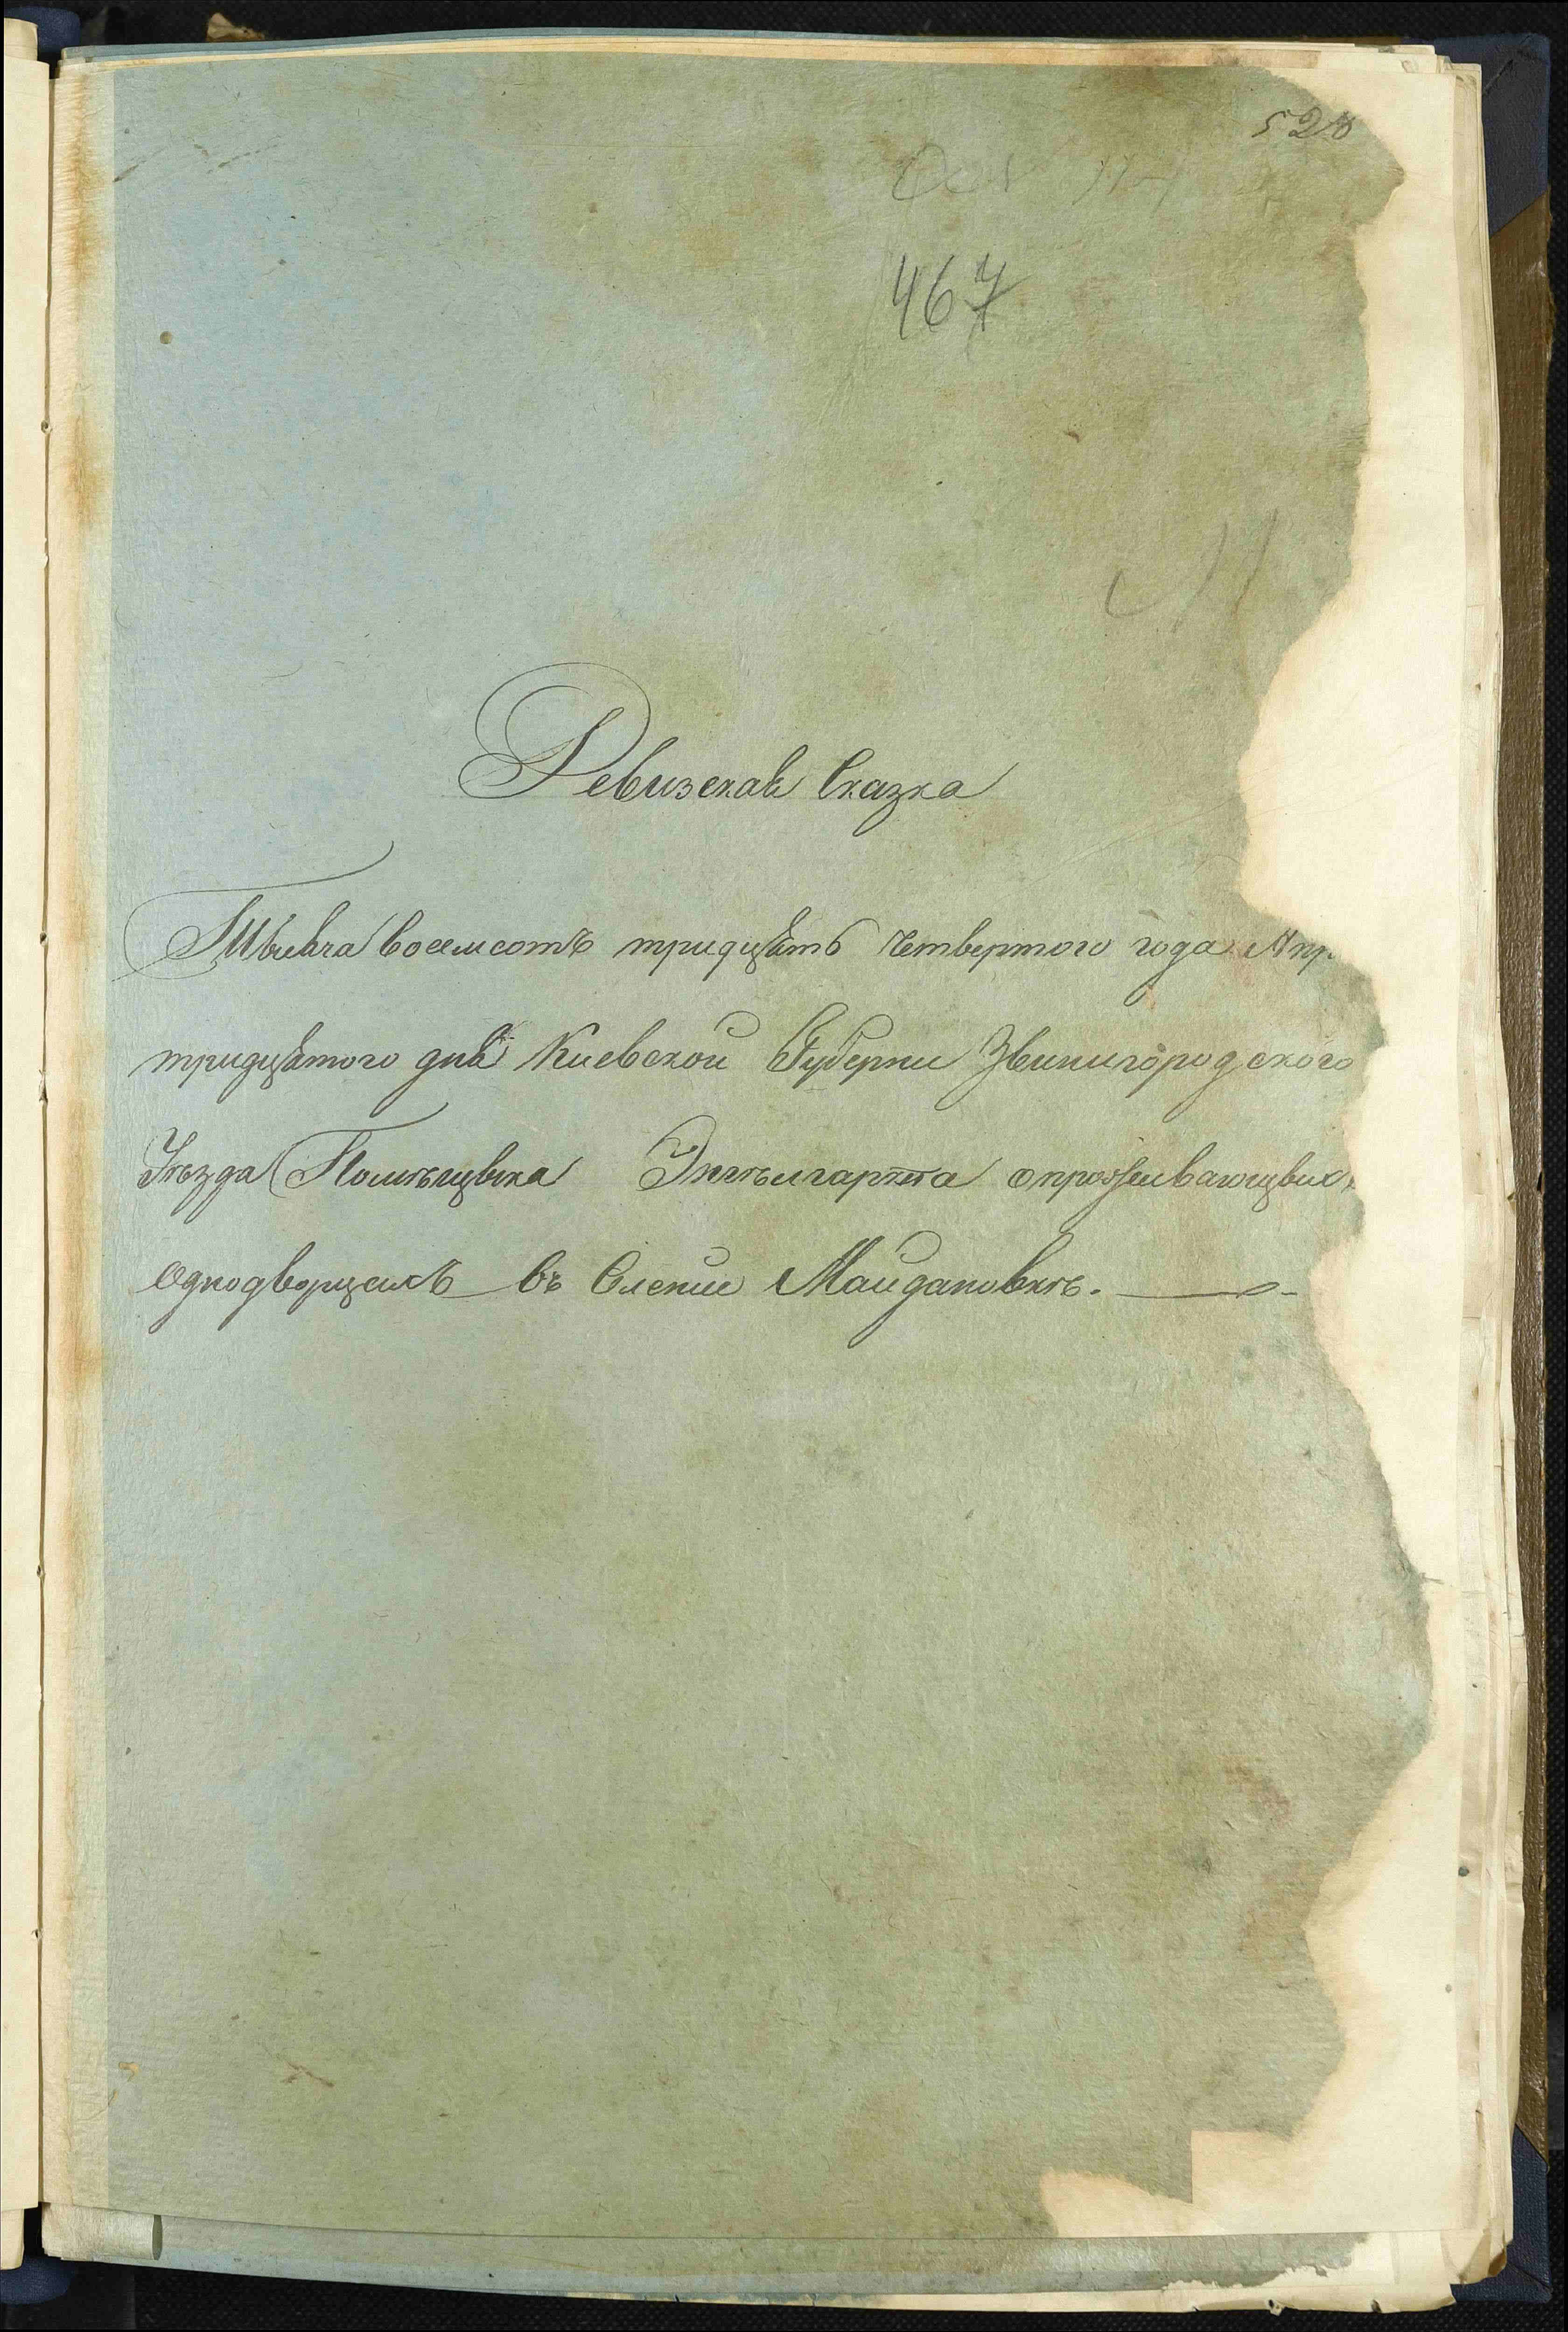 528
467
Ревизская Сказка
Тысяча восемсотъ тридцять четвертого года Апр
тридцятого дня Киевской Губерни Звинигородского
Уѣзда Помѣщыка Энгѣлгарта о проживающых
однодворцахъ въ Слении Майдановкѣ.